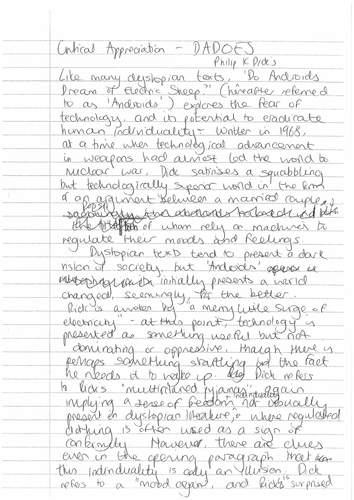 Critical Appreciation - DADOES
Philip K Dick's
Like many dystopian texts, 'Do Androids
Dream of Electric Sheep?' (hereafter referred
to as 'Androids') explores the fear of
technology, and its potential to eradicate
human individuality. Written in 1968,
at a time when technological advancement
in weapons had almost led the world to
nuclear war, Dick satirises a squabbling
but technologically superior world in the form
of an argument between a married couple,
both
of whom rely on machines to
regulate their moods and feelings.
Dystopian texts tend to present a dark
vision of society, but 'Androids'
initially presents a world
changed, seemingly, for the better.
Rick is awoken by "a merry little surge of
electricity" - at this point, technology is
presented as something useful but not
dominating or oppressive, though there is
perhaps something startling in the fact
he needs it to wake up. Dick refers
to Rick's "multihued pyjamas", again
+ individuality
implying a sense of freedom not usually
present in dystopian literature, where regulated
clothing is often used as a sign of
conformity. However, there are clues
even in the opening paragraph that
this individuality is only an illusion. Dick
refers to a "mood organ", and Rick's "surprised